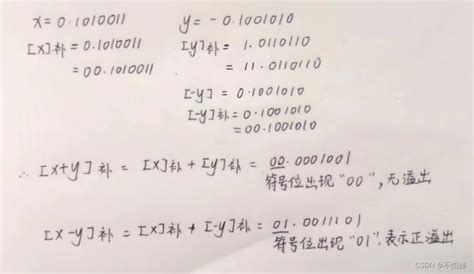 x = 0.1010011 y = - 0.1001010
[x]补 = 0.1010011 [y]补 = 1.0110110
= 00.1010011 = 11.0110110
[-y] = 0.1001010
[-y]补 = 0.1001010
= 00.1001010
∴ [x+y]补 = [x]补 + [y]补 = 00.0001001
符号位出现"00",无溢出
[x-y]补 = [x]补 + [-y]补 = 01.0011101
符号位出现"01",表示正溢出
CSDN @不怕娜